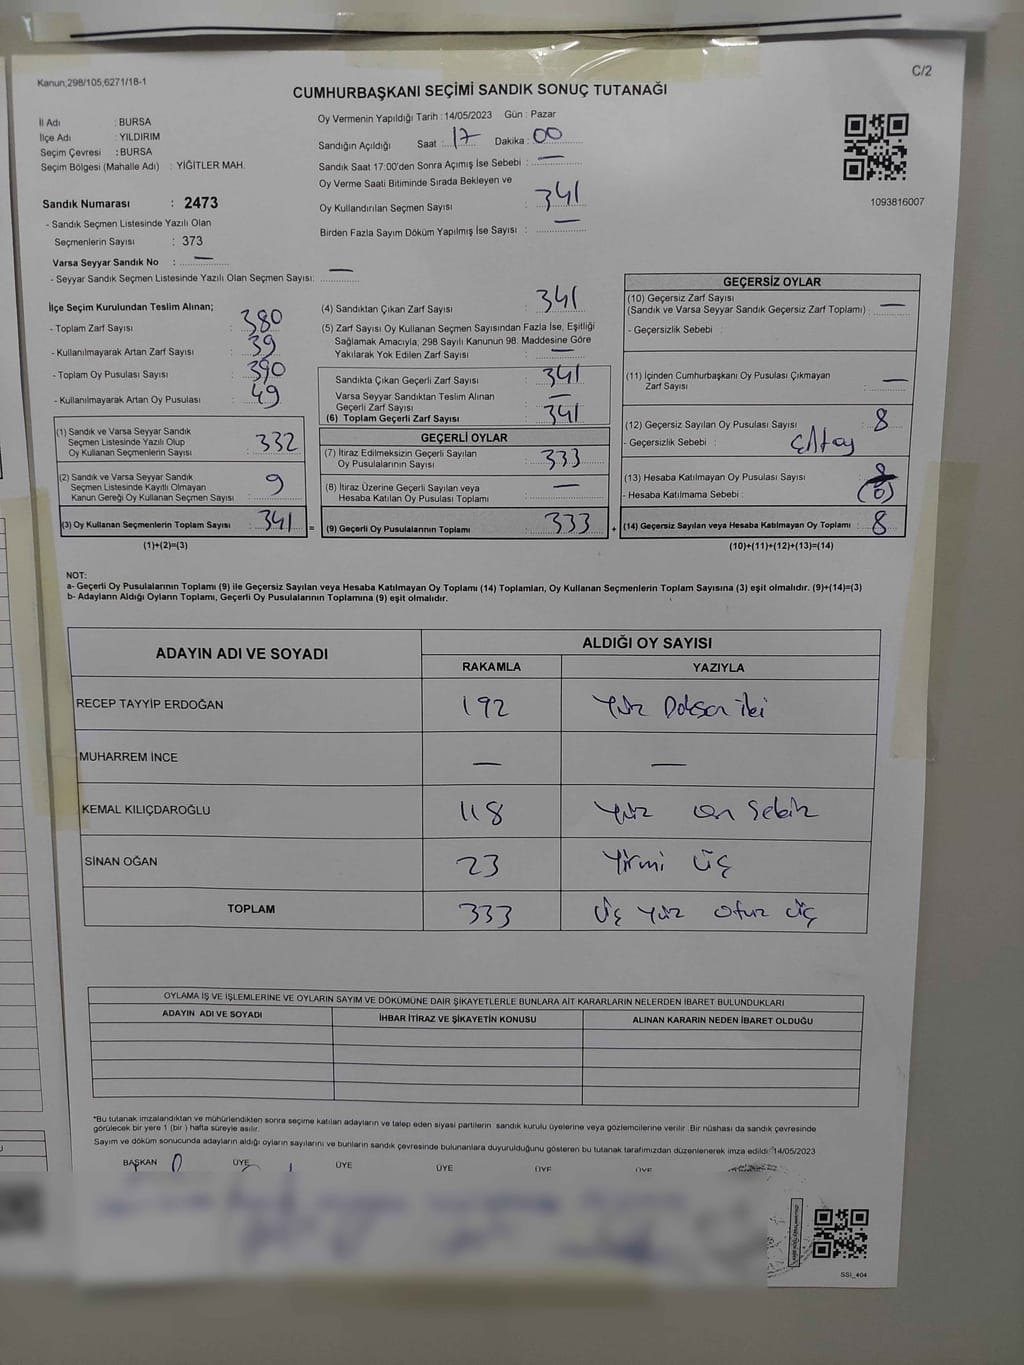 Kanun,298/105,6271/18-1
C/2
CUMHURBAŞKANI SEÇİMİ SANDIK SONUÇ TUTANAĞI
İl Adı : BURSA
İlçe Adı : YILDIRIM
Seçim Çevresi : BURSA
Seçim Bölgesi (Mahalle Adı) : YİĞİTLER MAH.
Sandık Numarası : 2473
- Sandık Seçmen Listesinde Yazılı Olan
Seçmenlerin Sayısı : 373
Varsa Seyyar Sandık No : —
- Seyyar Sandık Seçmen Listesinde Yazılı Olan Seçmen Sayısı: —
Oy Vermenin Yapıldığı Tarih : 14/05/2023 Gün : Pazar
Sandığın Açıldığı Saat : 17 Dakika : 00
Sandık Saat 17:00'den Sonra Açımış İse Sebebi : —
Oy Verme Saati Bitiminde Sırada Bekleyen ve
Oy Kullandırılan Seçmen Sayısı : 341
Birden Fazla Sayım Döküm Yapılmış İse Sayısı : —
1093816007
İlçe Seçim Kurulundan Teslim Alınan;
- Toplam Zarf Sayısı : 380
- Kullanılmayarak Artan Zarf Sayısı : 39
- Toplam Oy Pusulası Sayısı : 390
- Kullanılmayarak Artan Oy Pusulası : 49
(1) Sandık ve Varsa Seyyar Sandık
Seçmen Listesinde Yazılı Olup
Oy Kullanan Seçmenlerin Sayısı : 332
(2) Sandık ve Varsa Seyyar Sandık
Seçmen Listesinde Kayıtlı Olmayan
Kanun Gereği Oy Kullanan Seçmen Sayısı : 9
(3) Oy Kullanan Seçmenlerin Toplam Sayısı : 341
(1)+(2)=(3)
(4) Sandıktan Çıkan Zarf Sayısı : 341
(5) Zarf Sayısı Oy Kullanan Seçmen Sayısından Fazla İse, Eşitliği
Sağlamak Amacıyla; 298 Sayılı Kanunun 98. Maddesine Göre
Yakılarak Yok Edilen Zarf Sayısı : —
Sandıkta Çıkan Geçerli Zarf Sayısı : 341
Varsa Seyyar Sandıktan Teslim Alınan
Geçerli Zarf Sayısı : —
(6) Toplam Geçerli Zarf Sayısı : 341
GEÇERLİ OYLAR
(7) İtiraz Edilmeksizin Geçerli Sayılan
Oy Pusulalarının Sayısı : 333
(8) İtiraz Üzerine Geçerli Sayılan veya
Hesaba Katılan Oy Pusulası Toplamı : —
= (9) Geçerli Oy Pusulalarının Toplamı : 333 +
GEÇERSİZ OYLAR
(10) Geçersiz Zarf Sayısı
(Sandık ve Varsa Seyyar Sandık Geçersiz Zarf Toplamı) : —
- Geçersizlik Sebebi :
(11) İçinden Cumhurbaşkanı Oy Pusulası Çıkmayan
Zarf Sayısı : —
(12) Geçersiz Sayılan Oy Pusulası Sayısı : 8
- Geçersizlik Sebebi :
(13) Hesaba Katılmayan Oy Pusulası Sayısı :
- Hesaba Katılmama Sebebi :
(14) Geçersiz Sayılan veya Hesaba Katılmayan Oy Toplamı : 8
(10)+(11)+(12)+(13)=(14)
NOT:
a- Geçerli Oy Pusulalarının Toplamı (9) ile Geçersiz Sayılan veya Hesaba Katılmayan Oy Toplamı (14) Toplamları, Oy Kullanan Seçmenlerin Toplam Sayısına (3) eşit olmalıdır. (9)+(14)=(3)
b- Adayların Aldığı Oyların Toplamı, Geçerli Oy Pusulalarının Toplamına (9) eşit olmalıdır.
ADAYIN ADI VE SOYADI
ALDIĞI OY SAYISI
RAKAMLA YAZIYLA
RECEP TAYYİP ERDOĞAN 192 Yüz Doksan iki
MUHARREM İNCE — —
KEMAL KILIÇDAROĞLU 118 Yüz on sekiz
SİNAN OĞAN 23 Yirmi üç
TOPLAM 333 üç yüz otuz üç
OYLAMA İŞ VE İŞLEMLERİNE VE OYLARIN SAYIM VE DÖKÜMÜNE DAİR ŞİKAYETLERLE BUNLARA AİT KARARLARIN NELERDEN İBARET BULUNDUKLARI
ADAYIN ADI VE SOYADI İHBAR İTİRAZ VE ŞİKAYETİN KONUSU ALINAN KARARIN NEDEN İBARET OLDUĞU
*Bu tutanak imzalandıktan ve mühürlendikten sonra seçime katılan adayların ve talep eden siyasi partilerin sandık kurulu üyelerine veya gözlemcilerine verilir. Bir nüshası da sandık çevresinde
görülecek bir yere 1 (bir) hafta süreyle asılır.
Sayım ve döküm sonucunda adayların aldığı oyların sayılarını ve bunların sandık çevresinde bulunanlara duyurulduğunu gösteren bu tutanak tarafımızdan düzenlenerek imza edildi. 14/05/2023
BAŞKAN ÜYE ÜYE ÜYE ÜYE ÜYE
SSI_404